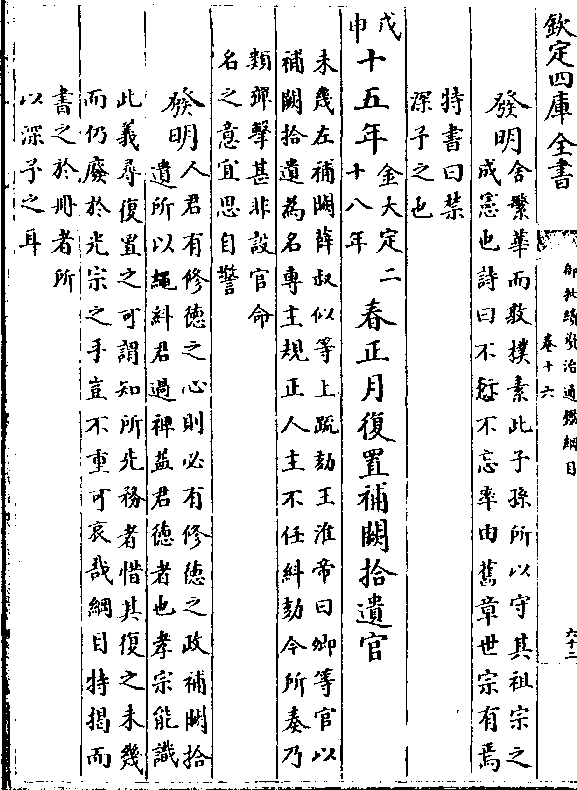 欽定四庫全書
御批續資治通鑑綱目
卷十六
六十二
發明舍繁華而敦樸素此子孫所以守其祖宗之
成憲也詩曰不愆不忘率由舊章世宗有焉
特書曰禁
深予之也
戊申
十五年金大定二十八年春正月復置補闕拾遺官
未幾左補闕薛叔似等上疏劾王淮帝曰卿等官以
補闕拾遺為名專主規正人主不任糾劾今所奏乃
類彈擊甚非設官命
名之意宜思自警
發明人君有修德之心則必有修德之政補闕拾
遺所以繩糾君過裨益君德者也孝宗能識
此義尋復置之可謂知所先務者惜其復之未幾
而仍廢於光宗之手豈不重可哀哉綱目特揭而
書之於冊者所
以深予之耳